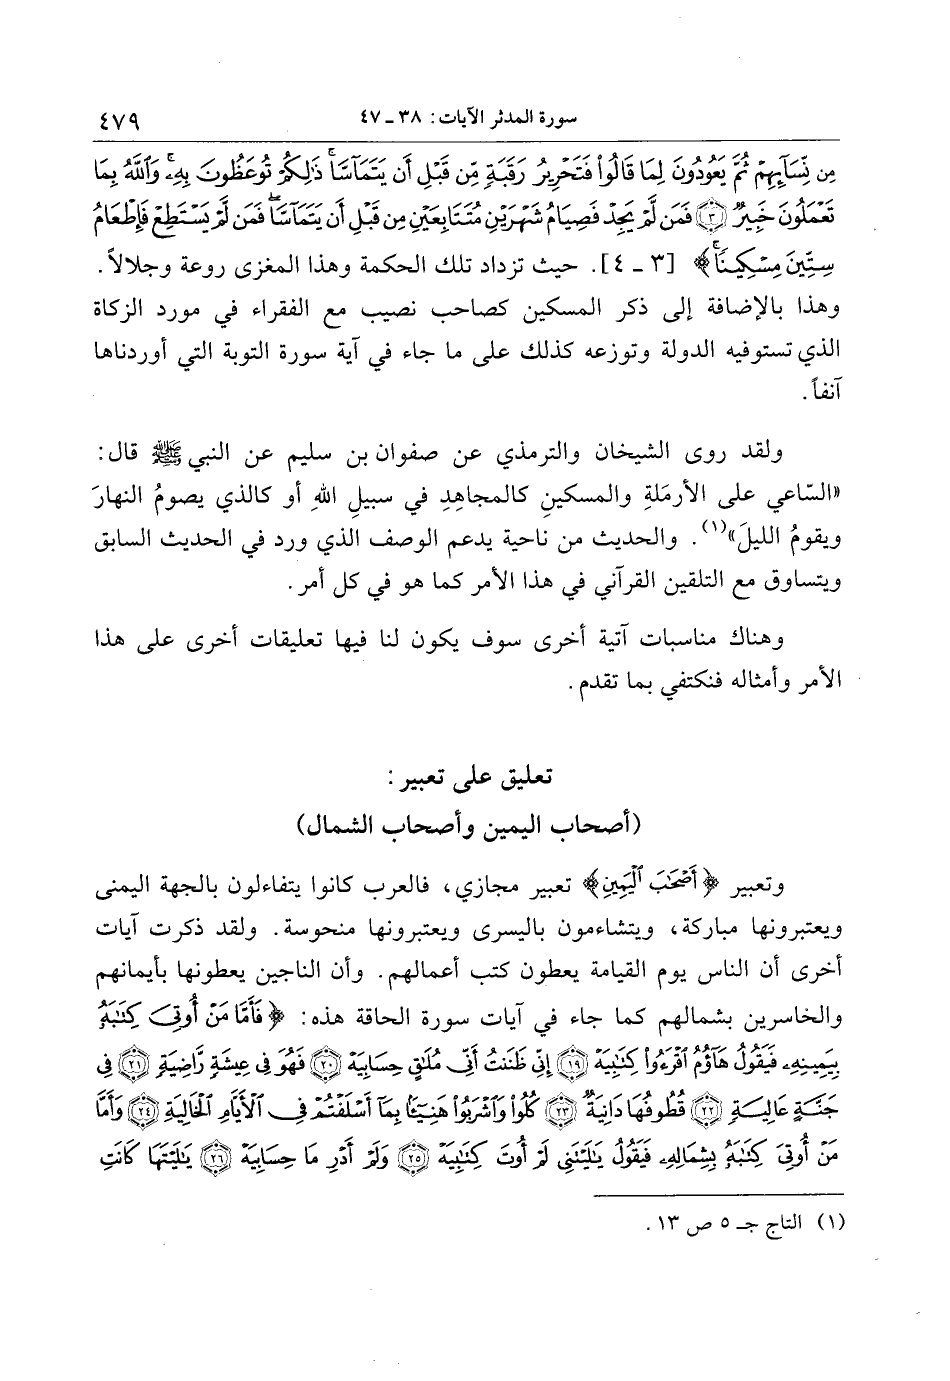 سورة المدثر الآيات: ٣٨ ـ ٤٧ ٤٧٩
مِن نِّسَآئِهِمْ ثُمَّ يَعُودُونَ لِمَا قَالُوا۟ فَتَحْرِيرُ رَقَبَةٍ مِّن قَبْلِ أَن يَتَمَآسَّا ۚ ذَٰلِكُمْ تُوعَظُونَ بِهِۦ ۚ وَٱللَّهُ بِمَا
تَعْمَلُونَ خَبِيرٌ ﴿٣﴾ فَمَن لَّمْ يَجِدْ فَصِيَامُ شَهْرَيْنِ مُتَتَابِعَيْنِ مِن قَبْلِ أَن يَتَمَآسَّا ۖ فَمَن لَّمْ يَسْتَطِعْ فَإِطْعَامُ
سِتِّينَ مِسْكِينًا ۚ﴾ [٣ ـ ٤]. حيث تزداد تلك الحكمة وهذا المغزى روعة وجلالاً.
وهذا بالإضافة إلى ذكر المسكين كصاحب نصيب مع الفقراء في مورد الزكاة
الذي تستوفيه الدولة وتوزعه كذلك على ما جاء في آية سورة التوبة التي أوردناها
آنفاً.
ولقد روى الشيخان والترمذي عن صفوان بن سليم عن النبي ﷺ قال:
«السّاعي على الأرمَلةِ والمسكينِ كالمجاهِدِ في سبيلِ اللهِ أو كالذي يصومُ النهارَ
ويقومُ الليلَ»(١). والحديث من ناحية يدعم الوصف الذي ورد في الحديث السابق
ويتساوق مع التلقين القرآني في هذا الأمر كما هو في كل أمر.
وهناك مناسبات آتية أخرى سوف يكون لنا فيها تعليقات أخرى على هذا
الأمر وأمثاله فنكتفي بما تقدم.
تعليق على تعبير:
(أصحاب اليمين وأصحاب الشمال)
وتعبير ﴿أَصْحَٰبَ ٱلْيَمِينِ﴾ تعبير مجازي، فالعرب كانوا يتفاءلون بالجهة اليمنى
ويعتبرونها مباركة، ويتشاءمون باليسرى ويعتبرونها منحوسة. ولقد ذكرت آيات
أخرى أن الناس يوم القيامة يعطون كتب أعمالهم. وأن الناجين يعطونها بأيمانهم
والخاسرين بشمالهم كما جاء في آيات سورة الحاقة هذه: ﴿فَأَمَّا مَنْ أُوتِىَ كِتَٰبَهُۥ
بِيَمِينِهِۦ فَيَقُولُ هَآؤُمُ ٱقْرَءُوا۟ كِتَٰبِيَهْ ﴿١٩﴾ إِنِّى ظَنَنتُ أَنِّى مُلَٰقٍ حِسَابِيَهْ ﴿٢٠﴾ فَهُوَ فِى عِيشَةٍ رَّاضِيَةٍ ﴿٢١﴾ فِى
جَنَّةٍ عَالِيَةٍ ﴿٢٢﴾ قُطُوفُهَا دَانِيَةٌ ﴿٢٣﴾ كُلُوا۟ وَٱشْرَبُوا۟ هَنِيٓـًٔۢا بِمَآ أَسْلَفْتُمْ فِى ٱلْأَيَّامِ ٱلْخَالِيَةِ ﴿٢٤﴾ وَأَمَّا
مَنْ أُوتِىَ كِتَٰبَهُۥ بِشِمَالِهِۦ فَيَقُولُ يَٰلَيْتَنِى لَمْ أُوتَ كِتَٰبِيَهْ ﴿٢٥﴾ وَلَمْ أَدْرِ مَا حِسَابِيَهْ ﴿٢٦﴾ يَٰلَيْتَهَا كَانَتِ
(١) التاج جـ ٥ ص ١٣.